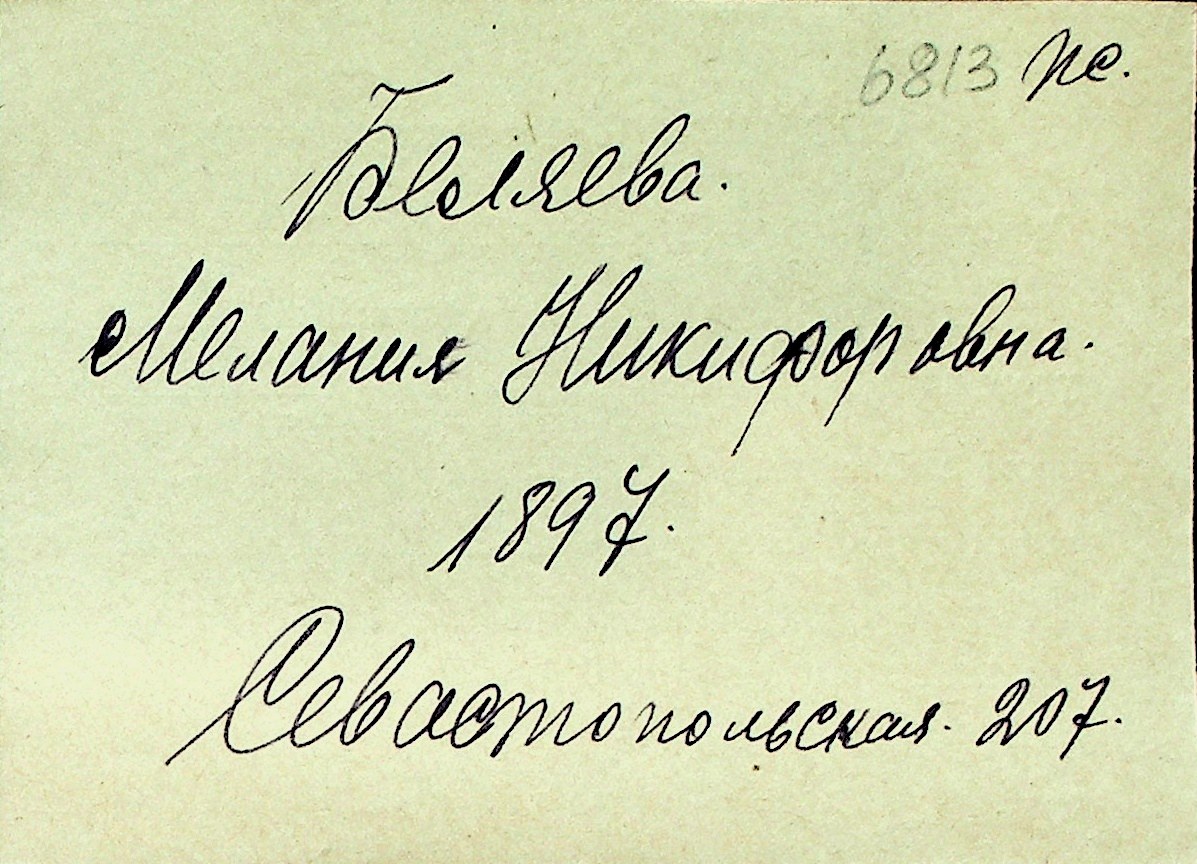 6813 пс.
Беляева.
Мелания Никифоровна.
1897.
Севастопольская. 207.